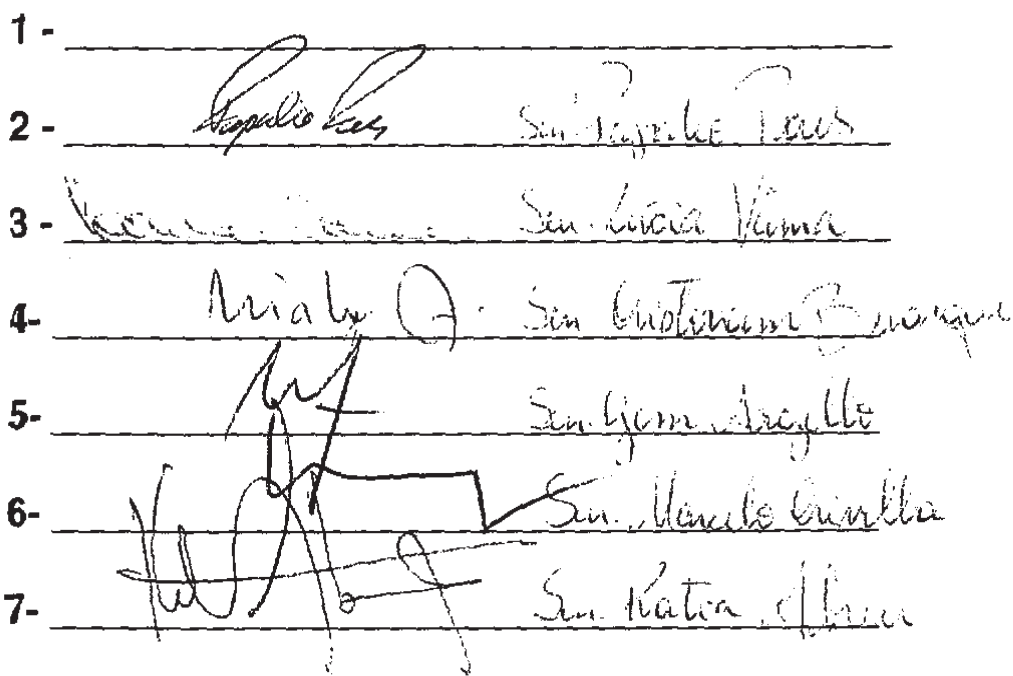 1 -
2 - Papaléo Paes Sen. Papaléo Paes
3 - Sen. Lúcia Vânia
4- Sen. Cristovam Buarque
5- Sen. Gim Argello
6- Sen. Marcelo Crivella
7- Sen. Katia Abreu